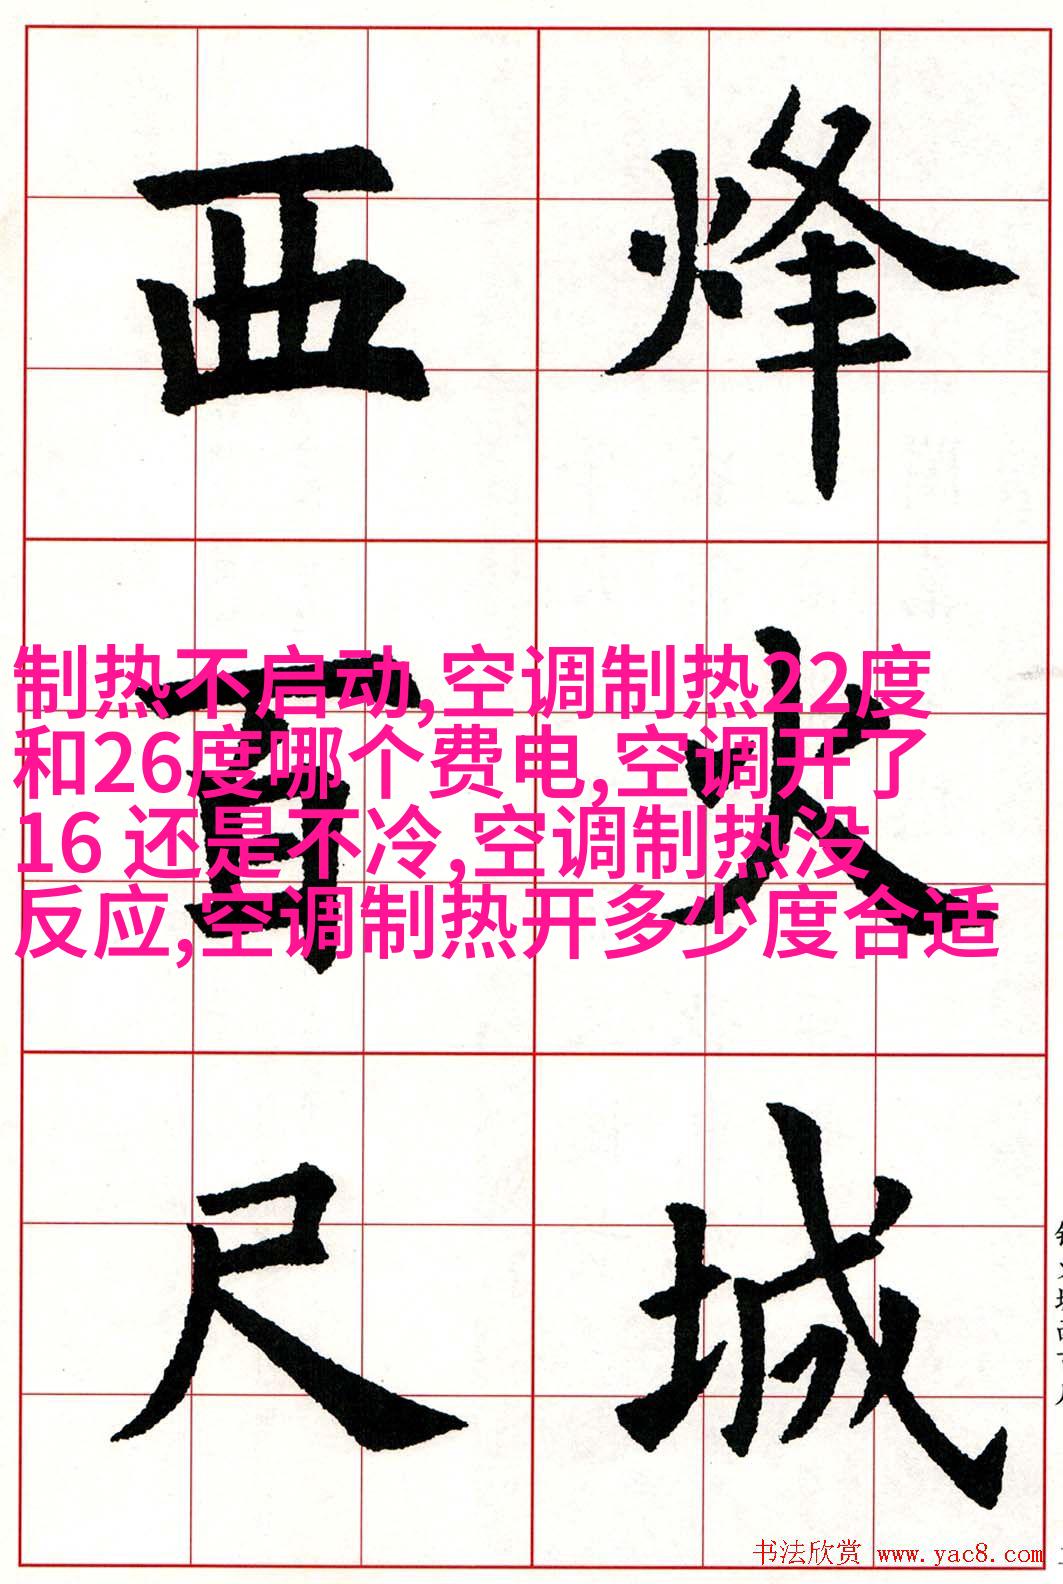 烽火城
西百尺
制热不启动,空调制热22度
和26度哪个费电,空调开了
16 还是不冷,空调制热没
反应,空调制热开多少度合适
书法欣赏 www.yac8.com